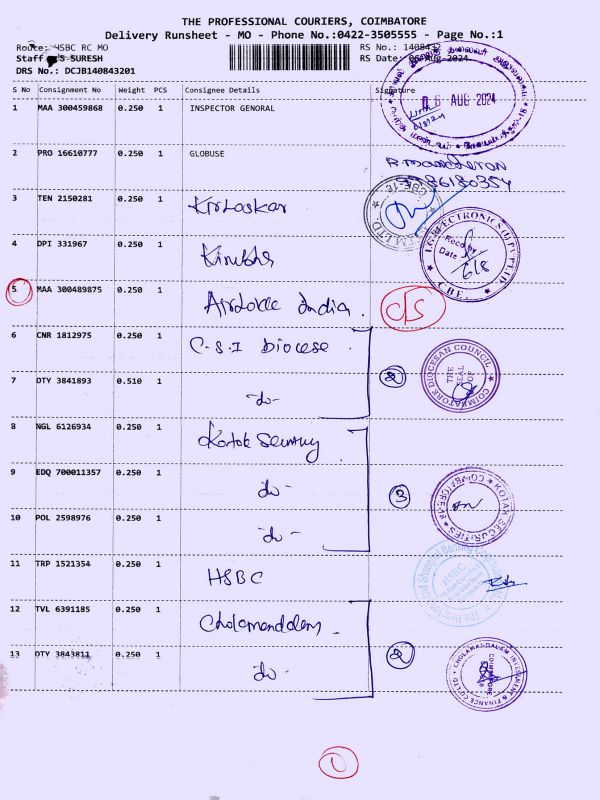 THE PROFESSIONAL COURIERS, COIMBATORE
Delivery Runsheet - MO - Phone No.:0422-3505555 - Page No.:1
Route: HSBC RC MO
RS No.: 1408432
Staff SURESH
RS Date: 06-Aug-2024
DRS No.: DCJB140843201
S No Consignment No Weight PCS Consignee Details Signature
1 MAA 300459868 0.250 1 INSPECTOR GENORAL
06 AUG 2024
2 PRO 16610777 0.250 1 GLOBUSE
3 TEN 2150281 0.250 1 Kirloskar
CBE-18
4 DPI 331967 0.250 1 Kirubha
LG ELECTRONICS
Recd by
Date 6/8
CBE
5 MAA 300489875 0.250 1 India.
6 CNR 1812975 0.250 1 C.S.I Diocese
COIMBATORE DIOCESAN COUNCIL
THE SEAL OF
7 OTY 3841893 0.510 1 -do- 2
8 NGL 6126934 0.250 1 Kotak Security
9 EDQ 700011357 0.250 1 do - 3
KOTAK SECURITIES
COIMBATORE-18
10 POL 2598976 0.250 1 do -
11 TRP 1521354 0.250 1 HSBC
HSBC
12 TVL 6391185 0.250 1 Cholamandalam
13 OTY 3843811 0.250 1 do - 2
CHOLAMANDALAM INVESTMENT & FINANCE CO LTD
COIMBATORE
1